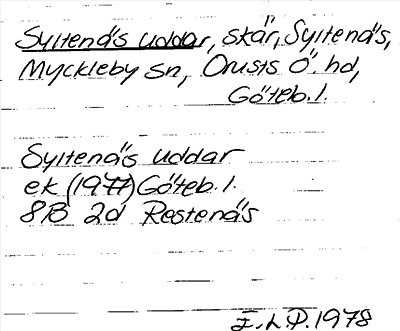 Syltenäs uddar, skär, Syltenäs,
Myckleby sn, Orusts Ö. hd,
Göteb. l.
Syltenäs uddar
ek (1977) Göteb. l.
8B 2d Restenäs
E.L.P. 1978